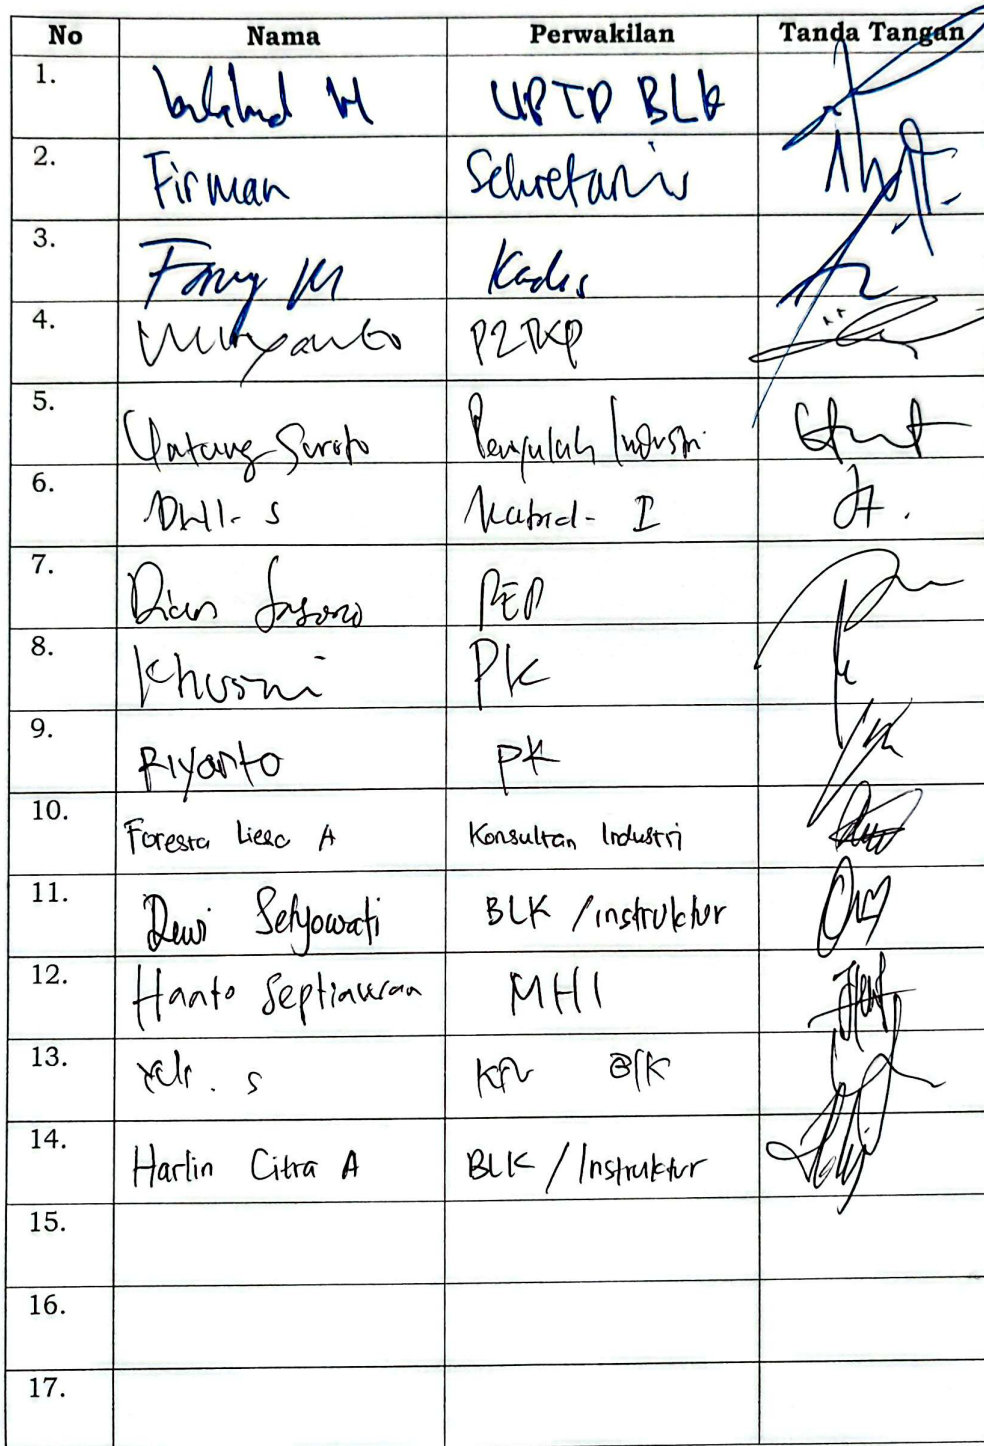 No Nama Perwakilan Tanda Tangan
1. M UPTD BLK
2. Firman Sekretaris
3. Fany M Kadis
4. P2TKP
5. Untung Suroto Penyuluh Industri
6. Dwi. S Kabid - I
7. Dian Sasono PEP
8. Khusni PK
9. Riyanto PK
10. Foresta Liesc A Konsultan Industri
11. Dewi Setyowati BLK / instruktur
12. Haato Septiawan MHI
13. S BLK
14. Harlin Citra A BLK / Instruktur
15.
16.
17.